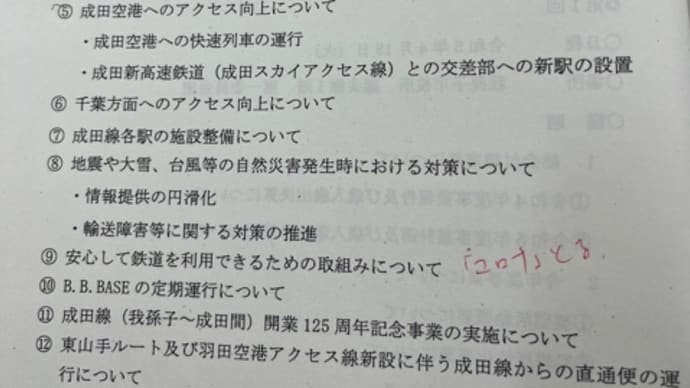 ⑤ 成田空港へのアクセス向上について
・成田空港への快速列車の運行
・成田新高速鉄道（成田スカイアクセス線）との交差部への新駅の設置
⑥ 千葉方面へのアクセス向上について
⑦ 成田線各駅の施設整備について
⑧ 地震や大雪、台風等の自然災害発生時における対策について
・情報提供の円滑化
・輸送障害等に関する対策の推進
⑨ 安心して鉄道を利用できるための取組みについて 「コロナ」とる
⑩ B.B.BASEの定期運行について
⑪ 成田線（我孫子～成田間）開業125周年記念事業の実施について
⑫ 東山手ルート及び羽田空港アクセス線新設に伴う成田線からの直通便の運
行について